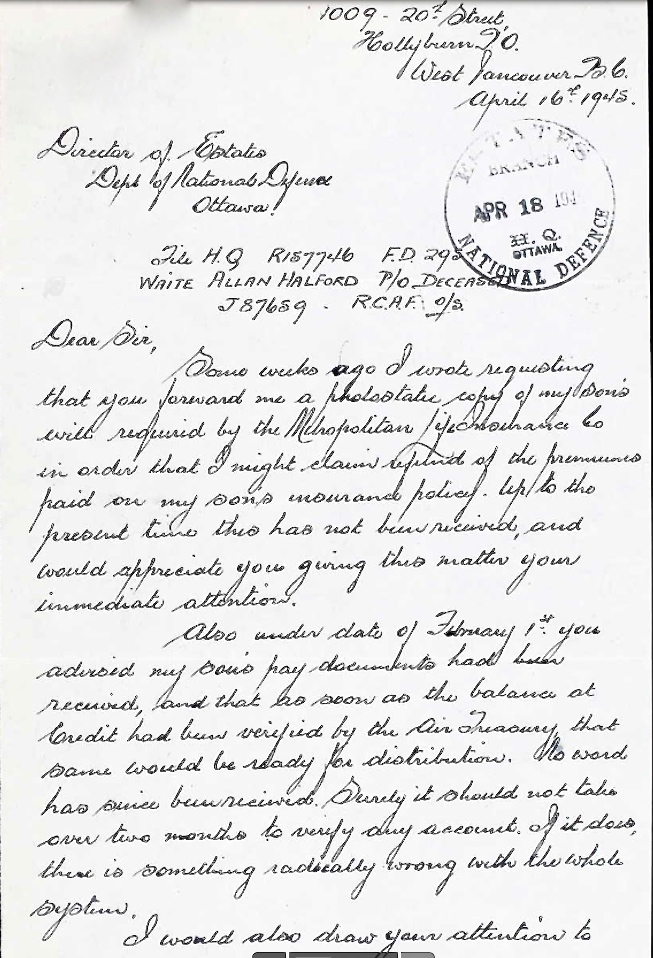 1009 - 20th Street,
Hollyburn P.O.
West Vancouver B.C.
April 16th 1945.
Director of Estates
Dept of National Defence
Ottawa.
ESTATES
BRANCH
APR 18 194
H. Q.
OTTAWA
NATIONAL DEFENCE
File H.Q R157746 F.D. 295
WAITE ALLAN HALFORD P/O DECEASED
J87659 - R.C.A.F. o/s.
Dear Sir,
Some weeks ago I wrote requesting
that you forward me a photostatic copy of my son's
will required by the Metropolitan Life Insurance Co
in order that I might claim refund of the premiums
paid on my son's insurance policy. Up to the
present time this has not been received, and
would appreciate you giving this matter your
immediate attention.
Also under date of February 1st you
advised my son's pay documents had been
received, and that as soon as the balance at
Credit had been verified by the Air Treasury, that
same would be ready for distribution. No word
has since been received. Surely it should not take
over two months to verify any account. If it does,
there is something radically wrong with the whole
system.
I would also draw your attention to